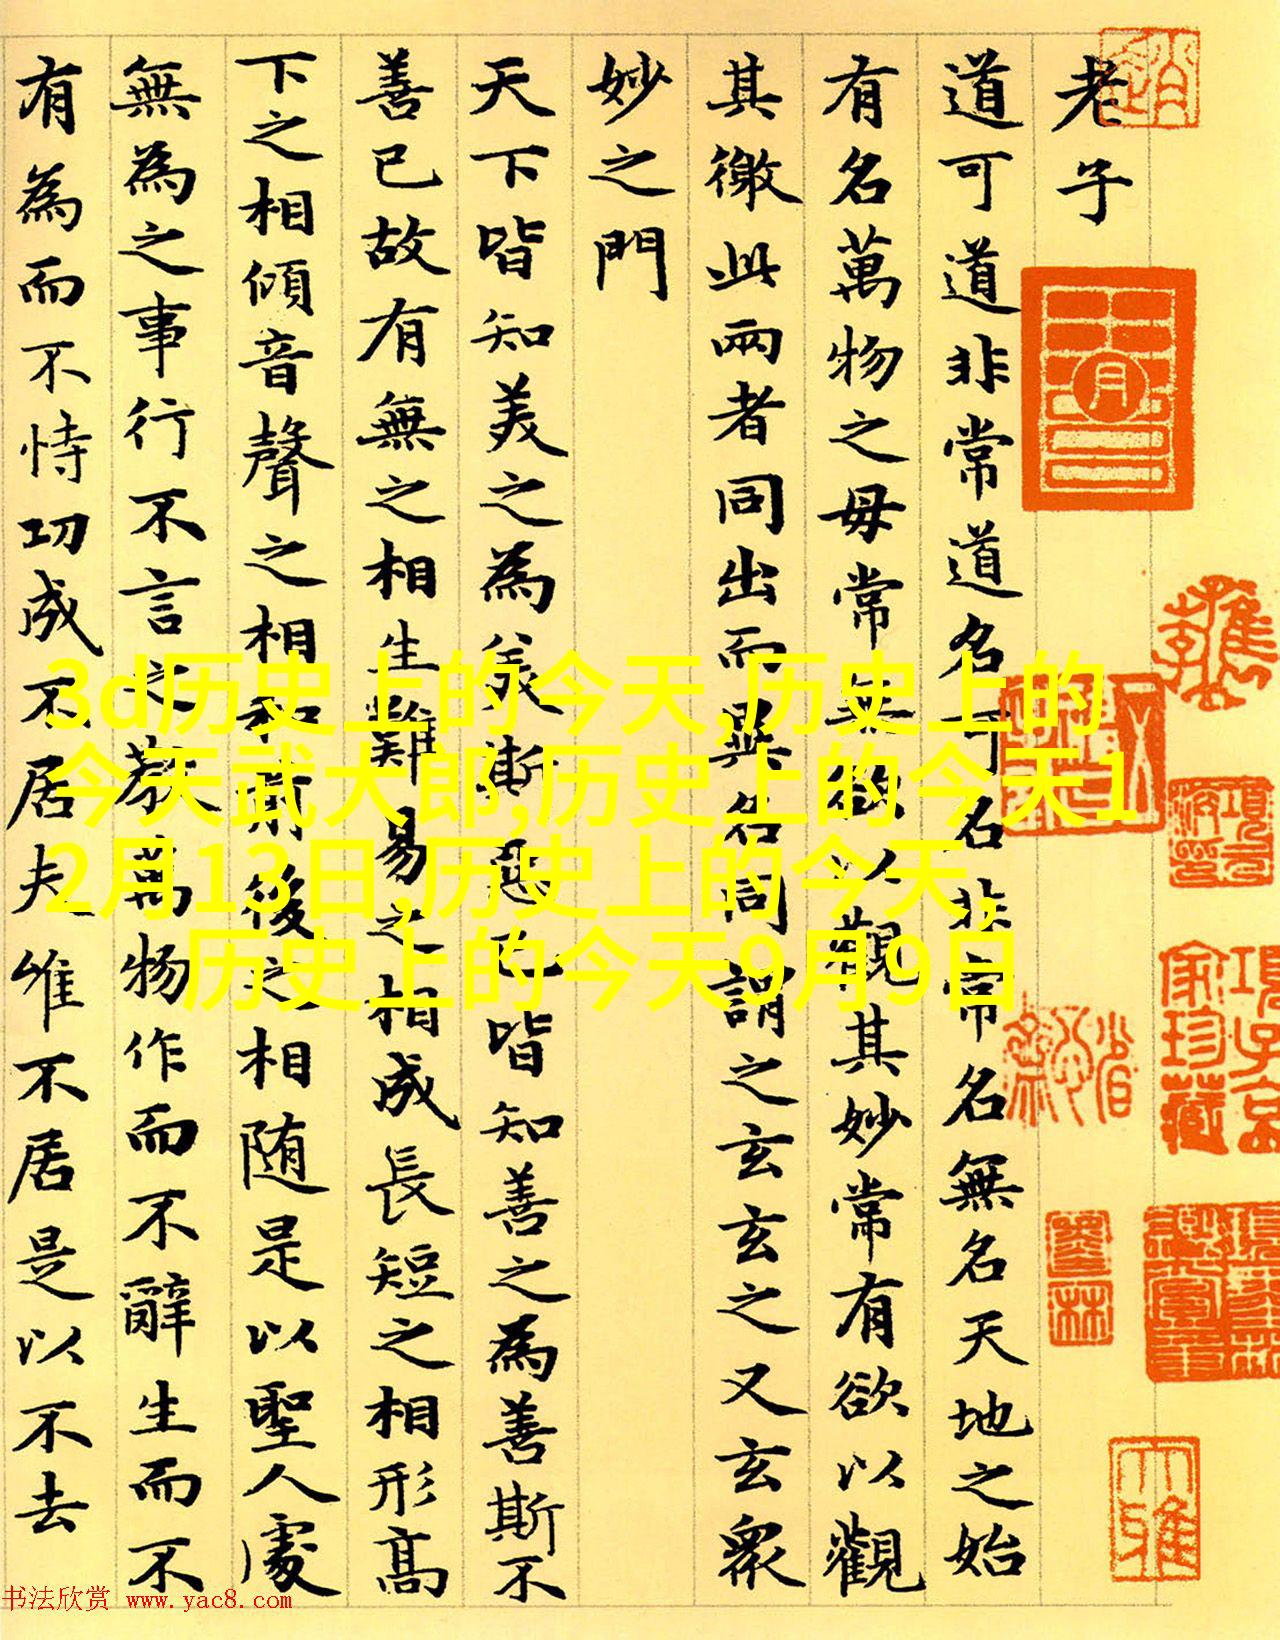 老子
道可道非常道名可名非常名無名天地之始
有名萬物之母常無欲以觀其妙常有欲以觀
其徼此兩者同出而異名同謂之玄玄之又玄衆
妙之門
天下皆知美之為美斯惡已皆知善之為善斯不
善已故有無之相生難易之相成長短之相形高
下之相傾音聲之相和前後之相随是以聖人處
無為之事行不言之教萬物作而不辭生而不
有為而不恃功成不居夫惟不居是以不去
3d历史上的今天,历史上的
今天武大郎,历史上的今天1
2月13日,历史上的今天,
历史上的今天9月9日
項子京
家珍藏
大雅
书法欣赏 www.yac8.com